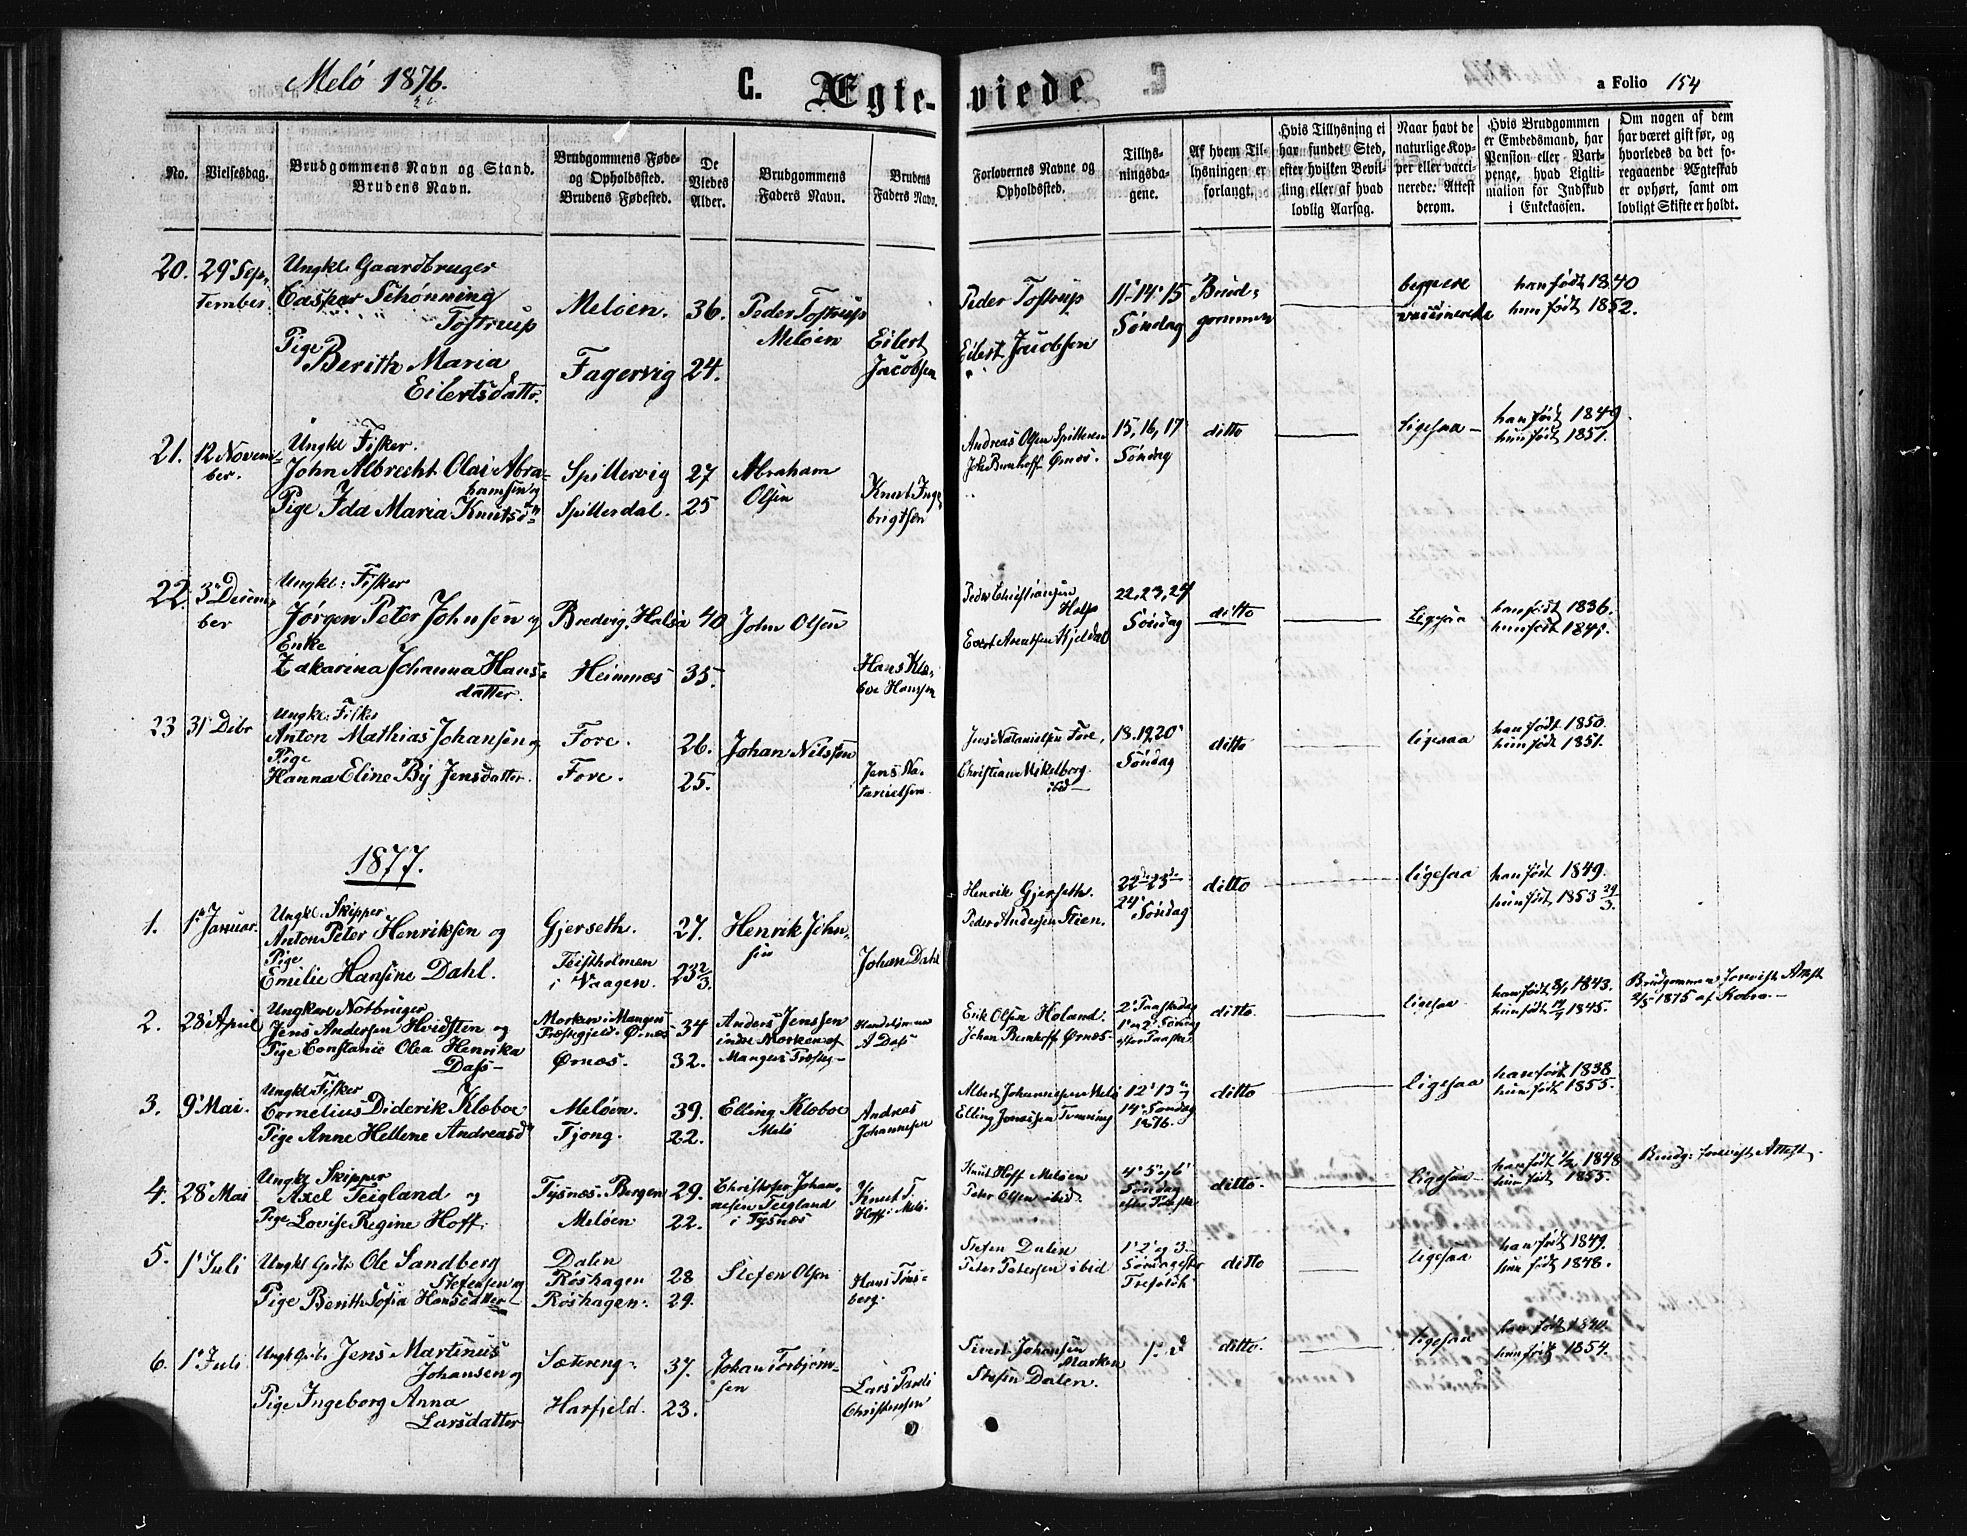 Melö 1876.
C. Ægte-
viede
a Folio 154
No.
Vielsesdag.
Brudgommens Navn og Stand.
Brudens Navn.
Brudgommens Føde-
og Opholdssted.
Brudens Fødested.
De
Viedes
Alder.
Brudgommens
Faders Navn.
Brudens
Faders Navn.
Forlovernes Navne og
Opholdssted.
Tillys-
ningsda-
gene.
Af hvem Til-
lysningen er
forlangt.
Hvis Tillysning ei
har fundet Sted,
efter hvilken Bevil-
ling eller af hvad
lovlig Aarsag.
Naar havt de
naturlige Kop-
per eller vacci-
nerede: Attest
derom.
Hvis Brudgommen
er Embedsmand, har
Pension eller Vart-
penge, hvad Ligiti-
mation for Indskud
i Enkekassen.
Om nogen af dem
har været gift før, og
hvorledes da det fo-
regaaende Ægteskab
er ophørt, samt om
lovligt Skifte er holdt.
20. 29' Sep-
tember.
Ungkl. Gaardbruger
Caspar Schönning
Tostrup
Pige
Berith Maria
Eilertsdattr.
Melöen.
Fagervig
36.
24.
Peder Tostrup
Melöen
Eilert
Jacobsen
Peder Tostrup
Eilert Jacobsen
11- 14' 15
Söndag
Brud-
gommen
begge ere
vaccinerede
han födt 1840
hun födt 1852.
21. 12 Novem-
ber.
Ungkl Fisker.
John Albrecht Olai Abra-
hamsen og
Pige Ida Maria Knutsd
Spildervig
Spilderdal.
27
25
Abraham
Olsen
Knut Inge
brigtsen
Andreas Olsen Spilderen
Joh: Bernhoff Ørnæs.
15, 16, 17
Söndag
ditto
ligesaa
han födt 1849
hun födt 1851.
22. 3' Decem-
ber
Ungkl: Fisker
Jörgen Peter Johnsen og
Enke
Zakarina Johanna Hans-
datter.
Bredvig, Halsa
Heimnæs
40
35.
John Olsen
Hans Klæ-
boe Hansen
Peder Christiansen
Evert Arentsen Kjeldal
22, 23, 24
Söndag
ditto
Ligesaa
han födt 1836.
hun födt 1841.
23 31' Debr
Ungkl: Fisker
Anton Mathias Johansen og
Pige
Hanna Eline By Jensdatter.
Fore.
Fore.
26.
25.
Johan Nilssen
Jens Na-
tanielsen
Jens Natanielsen Fore,
Christian Mikelborg
ibid
18. 19, 20'
Söndag
ditto
ligesaa
han födt 1850.
hun födt 1851.
1877.
1. 1' Januar.
Ungkl. Skipper
Anton Peter Henriksen og
Pige
Emilie Hansine Dahl.
Gjerseth.
Teistholmen
i Vaagen.
27.
23 2/3.
Henrik John-
sen
Johan Dahl
Henrik Gjerseth.
Peder Andersen Stien.
22de 23de
24' Söndag
ditto
ligesaa
han födt 1849.
hun födt 1853 29/3.
2. 28' April
Ungkar Notbruger
Jens Andersen Hvidsten og
Pige Constance Olea Henrika
Dass
Morken i Mangers
Præstegjeld. Ørnæs
Ørnæs.
34
32.
Anders Jenssen
indre Morken af
Mangers Præstg
A Dass
Erik Olsen Holand.
Johan Bernhoff Ørnæs
2' Paaskedag
1' og 2' Söndag
efter Paaske
ditto.
ligesaa
han födt 8/1 1843.
hun födt 1845.
Brudgommen foreviste Attest
2/5 1875 af
3. 9' Mai.
Ungkl. Fisker
Cornelius Diderik Klæboe
Pige Anne Hellene Andreasd
Melöen.
Tjong.
39.
22.
Elling Klæboe
Melö
Andreas
Johannesen
Albert Johannesen Melö
Elling Jonassen
12' 13' og
14' Söndag
1876.
ditto
ligesaa
han födt 1838
hun födt 1855.
4. 28' Mai
Ungkl Skipper
Axel Teigland og
Pige Lovise Regine Hoff.
Tysnæs. Bergen
Melöen
29.
22.
Christofer Johan-
nesen Teigland
i Tysnæs
Knut T.
Hoff i Melö.
Knut Hoff Melöen
Peter Olsen ibid
4' 5' og 6'
Söndag
efter Paaske
ditto.
ligesaa
han födt 1/2 1848
hun födt 1855.
Brudg: foreviste Attest.
5. 1' Juli
Ungkl Ole Sandberg
Stefensen og
Pige Berith Sofia Hansdatter
Dalen
Röshagen
Röshagen.
28
29.
Stefen Olsen
Hans Töns-
berg.
Stefen Dalen
Peter Petersen ibid
1' 2' og 3'
Söndag efter
Trefoldh.
ditto
ligesaa
han födt 1849.
hun födt 1848.
6. 1' Juli
Jens Martinus
Johansen og
Pige Ingeborg Anna
Larsdatter
Sætereng
Harfjeld.
37.
23.
Johan Torbjörn-
sen
Lars
Christensen
Sivert Johansen
Marken
Stefen Dalen.
ditto.
ligesaa
han födt 1840.
hun födt 1854.